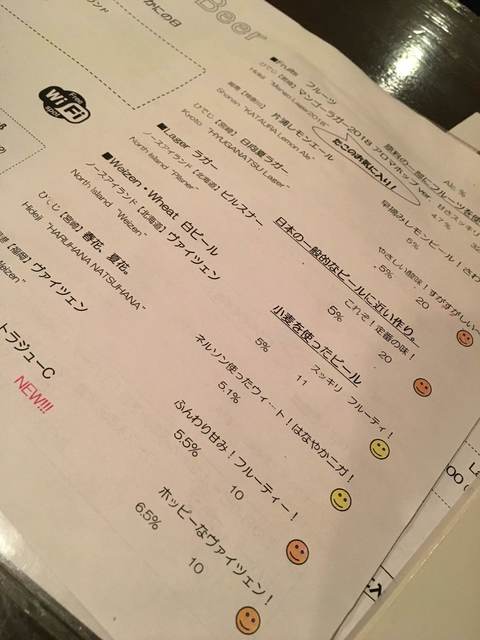 かにの日
Beer
ランド
Free
WiFi
■Fruits フルーツ 原料の一部にフルーツを使
ひでじ【宮崎】マンゴーラガー2018 アロマホップver. 甘さスッキリ
Hideji "Mango Lager2018" 4.7%
たこのお気に入り!
Alc.%
湘南【神奈川】片浦レモンエール 早摘みレモンビール!さわ
Shonan "KATAURA Lemon Ale" 5%
ひでじ【宮崎】日向夏ラガー やさしい酸味!すがすがしい
Kyoto "HYUGANATSU Lager" 5% 20
■Lager ラガー 日本の一般的なビールに近い作り。
ノースアイランド【北海道】ピルスナー これぞ!定番の味!
North Island "Pilsner" 5% 20
■Weizen・Wheat 白ビール 小麦を使ったビール
ノースアイランド【北海道】ヴァイツェン スッキリ フルーティ!
North Island "Weizen" 5% 11
ひでじ【宮崎】春花、夏花。 ネルソン使ったウィート!はなやかニガ!
Hideji "HARUHANA NATSUHANA" 5.1%
【福岡】ヴァイツェン ふんわり甘み!フルーティー!
Weizen" 5.5% 10
トラジューC ホッピーなヴァイツェン!
NEW!!! 6.5% 10